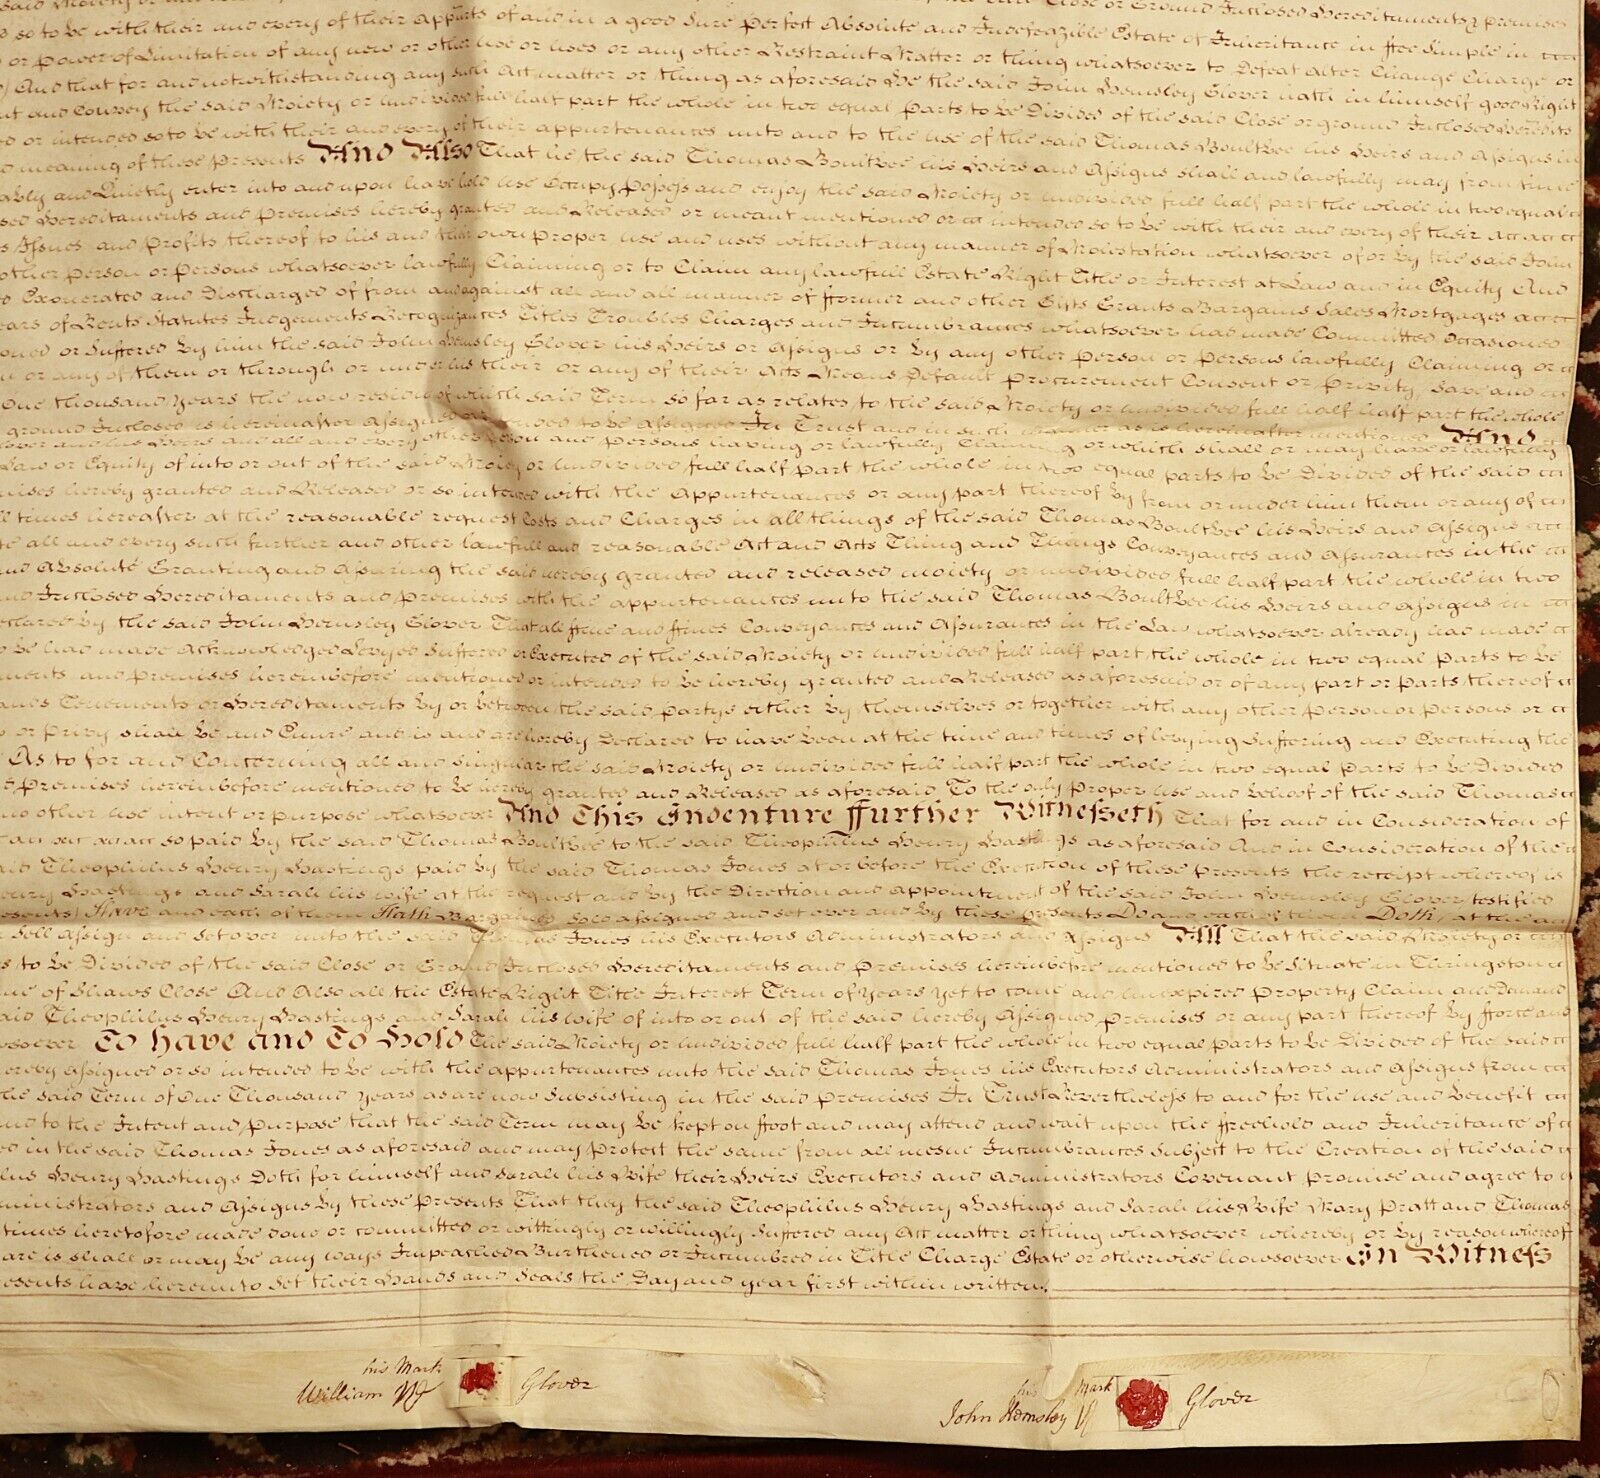 said Moiety or Close or Ground Inclosed Hereditaments & premises
so to be with their and every of their Appurts of and in a good Sure perfect Absolute and Indefeazible Estate of Inheritance in ffee Simple in
or power of Limitation of any new or other use or uses or any other Restraint Matter or thing whatsoever to Defeat alter Change Charge or
And that for and notwithstanding any such Act matter or thing as aforesaid He the said John Hemsley Glover hath in himself good Right
and Convey the said Moiety or undivided full half part the whole in two equal Parts to be Divided of the said Close or ground Inclosed Heredits
or intended so to be with their and every of their appurtenances unto and to the use of the said Thomas Boultbee his Heirs and Assigns in
meaning of these Presents And Also That he the said Thomas Boultbee his Heirs and Assigns shall and lawfully may from time
ably and Quietly enter into and upon have hold use Occupy Possess and enjoy the said Moiety or undivided full half part the whole in two equal
Hereditaments and Premises hereby granted and Released or meant mentioned or intended so to be with their and every of their
Issues and Profits thereof to his and their own Proper use and uses without any manner of Molestation whatsoever of or by the said John
other person or persons whatsoever lawfully Claiming or to Claim any lawfull Estate Right Title or Interest at Law and in Equity And
Exonerated and Discharged of from and against all and all manner of fformer and other Gifts Grants Bargains Sales Mortgages
ears of Rents Statutes Judgements Recognizances Titles Troubles Charges and Incumbrances whatsoever had made Committed Occasioned
or Suffered by him the said John Hemsley Glover his Heirs or Assigns or by any other person or persons lawfully Claiming or
or any of them or through or under his their or any of their Acts Means Default procurement Consent or Privity, Save and
One thousand years the now residue of which said Term so far as relates to the said Moiety or undivided full half half part the whole
ground Inclosed is hereinafter Assigned or intended to be Assigned In Trust and in such manner as is hereinafter mentioned And
and his Heirs and all and every other person and persons having or lawfully Claiming or which shall or may have or lawfully
Law or Equity of into or out of the said Moiety or undivided full half part the whole in two equal parts to be Divided of the said
mises hereby granted and Released or so intended with the Appurtenances or any part thereof by from or under him them or any of
times hereafter at the reasonable request Costs and Charges in all things of the said Thomas Boultbee his Heirs and Assigns
all and every such further and other lawfull and reasonable Act and Acts Thing and Things Conveyances and Assurances in the
and Absolute Granting and Assuring the said hereby granted and released moiety or undivided full half part the whole in two
Inclosed Hereditaments and Premises with the appurtenances unto the said Thomas Boultbee his Heirs and Assigns in
eclared by the said John Hemsley Glover That all ffine and ffines Conveyances and Assurances in the Law whatsoever already had made
be had made Acknowledged Levyed Suffered or Executed of the said Moiety or undivided full half part the whole in two equal Parts to be
ments and Premises hereinbefore mentioned or intended to be hereby granted and Released as aforesaid or of any part or Parts thereof
Tenements or Hereditaments by or between the said partys either by themselves or together with any other Person or Persons or
or Privy shall be and Enure and is and are hereby Declared to have been at the time and times of levying Suffering and Executing the
As to for and Concerning all and Singular the said Moiety or undivided full half part the whole in two equal parts to be Divided
Premises hereinbefore mentioned to be hereby granted and Released as aforesaid To the only Proper use and behoof of the said Thomas
no other use intent or purpose whatsoever And This Indenture ffurther Witnesseth That for and in Consideration of
so paid by the said Thomas Boultbee to the said Theophilus Henry Hastings as aforesaid And in Consideration of the
said Theophilus Henry Hastings paid by the said Thomas Jones at or before the Execution of these Presents the receipt whereof is
Henry Hastings and Sarah his wife at the request and by the Direction and appointment of the said John Hemsley Glover testified
esents) Have and each of them Hath Bargained Sold assigned and set over and by these Presents Do and each of them Doth, at the
Sell Assign and Set over unto the said Thomas Jones his Executors Administrators and Assigns All That the said Moiety or
to be Divided of the said Close or Ground Inclosed Hereditaments and Premises hereinbefore mentioned to be Situate in Thringstone
of Shaws Close And Also all the Estate Right Title Interest Term of Years yet to come and unexpired Property Claim and Demand
said Theophilus Henry Hastings and Sarah his wife of into or out of the said hereby Assigned Premises or any part thereof by fforce and
whatsoever To Have and To Hold The said Moiety or undivided full half part the whole in two equal parts to be Divided of the said
ereby Assigned or so intended to be with the appurtenances unto the said Thomas Jones his Executors Administrators and Assigns from
the said Term of One Thousand years as are now Subsisting in the said premises In Trust Nevertheless to and for the use and benefit
and to the Intent and purpose that the said Term may be kept on ffoot and may attend and wait upon the ffreehold and Inheritance of
in the said Thomas Jones as aforesaid and may Protect the same from all mesne Incumbrances Subject to the Creation of the said
Henry Hastings Doth for himself and Sarah his Wife their Heirs Executors and Administrators Covenant Promise and agree to
ministrators and Assigns by these Presents That they the said Theophilus Henry Hastings and Sarah his Wife Mary Pratt and Thomas
times heretofore made done or committed or wittingly or willingly Suffered any Act matter or thing whatsoever whereby or by reason whereof
are is shall or may be any ways Impeached Burthened or Incumbred in Title Charge Estate or otherwise howsoever In Witness
esents have hereunto Set their Hands and Seals the Day and year first within written.
his Mark
William Glover
his Mark
John Hemsley Glover